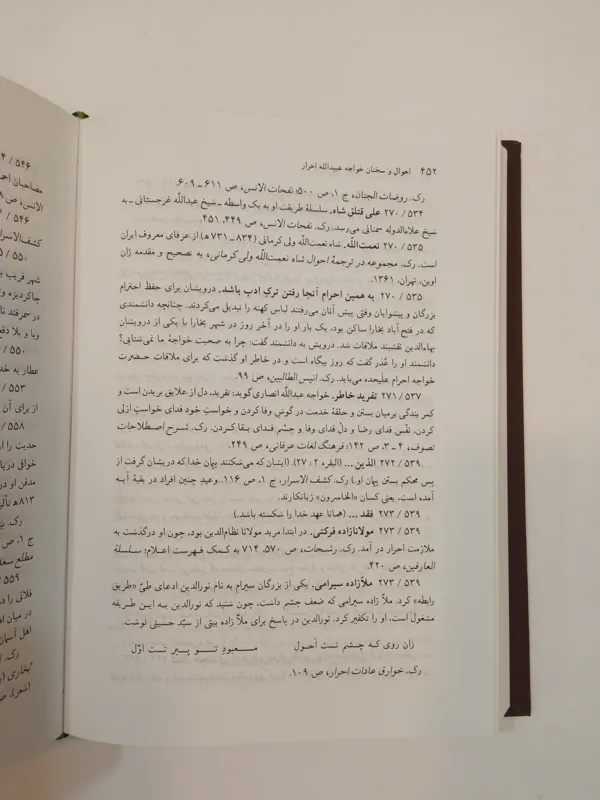 ۴۵۲ احوال و سخنان خواجه عبیدالله احرار
رک. روضات الجنان، ج ۱. ص ۵۰۰؛ نفحات الانس، ص ۶۱۱ ـ ۶۰۹.
۵۳۴ / ۲۷۰ علی قتلق شاه. سلسلهٔ طریقت او به یک واسطه ـ شیخ عبداللّه غرجستانی ـ به
شیخ علاءالدوله سمنانی می‌رسد. رک. نفحات الانس، ص ۴۴۹، ۴۵۱.
۵۳۵ / ۲۷۰ نعمت‌اللّه. شاه نعمت‌اللّه ولی کرمانی (۸۳۴ ـ ۷۳۱ ه‍) از عرفای معروف ایران
است. رک. مجموعه در ترجمهٔ احوال شاه نعمت‌اللّه ولی کرمانی، به تصحیح و مقدمه ژان
اوبن، تهران، ۱۳۶۱.
۵۳۵ / ۲۷۰ به همین احرام آنجا رفتن ترکِ ادب باشد. درویشان برای حفظ احترام
بزرگان و پیشوایان وقتی پیش آنان می‌رفتند لباس کهنه را تبدیل می‌کردند. چنانچه دانشمندی
که در فتح‌آباد بخارا ساکن بود، یک بار او را در آخر روز در شهر بخارا با یکی از درویشان
بهاءالدین نقشبند ملاقات شد. درویش به دانشمند گفت: چرا به صحبت خواجهٔ ما نمی‌شتابی؟
دانشمند او را عُذر گفت که روز بیگاه است و در خاطر او گذشت که برای ملاقات حضرت
خواجه احرام علیحده می‌باید. رک. انیس الطالبین، ص ۹۹.
۵۳۷ / ۲۷۱ تفرید خاطر. خواجه عبداللّه انصاری گوید: تفرید، دل از علایق بریدن است و
کمر بندگی برمیان بستن و حلقهٔ خدمت در گوش وفا کردن و خواستِ خود فدای خواستِ ازلی
کردن. نَفْس فدای رضا و دل فدای وفا و چشم فدای بقا کردن. رک. شرح اصطلاحات
تصوف، ۴ ـ ۳. ص ۱۴۲؛ فرهنگ لغات عرفانی، ص ۲۴۹.
۵۳۹ / ۲۷۲ الذین ... (البقره ۲ : ۲۷). (ایشان که می‌شکنند پیمان خدا که دریشان گرفت از
پس محکم بستن پیمان او.) رک. کشف الاسرار، ج ۱. ص ۱۱۶. وعیدِ چنین افراد در بقیهٔ آیه
آمده است. یعنی کسان «الخاسرون» زیانکارند.
۵۳۹ / ۲۷۳ فقد ... (همانا عهد خدا را شکسته باشد.)
۵۳۹ / ۲۷۳ مولانازاده فرکتی. در ابتدا مرید مولانا نظام‌الدین بود، چون او درگذشت به
ملازمت احرار در آمد. رک. رشحات، ص ۵۷۰، ۷۱۴ به کمک فهرست اعلام؛ سلسلة
العارفین، ص ۴۲۰.
۵۳۹ / ۲۷۳ ملاّزاده سیرامی. یکی از بزرگان سیرام به نام نورالدین ادعای طیّ «طریق
رابطه» کرد. ملاّ زاده سیرامی که ضعف چشم داشت، چون شنید که نورالدین به این طریقه
مشغول است، او را تکفیر کرد. نورالدین در پاسخ برای ملاّ زاده بیتی از سیّد حسینی نوشت.
زان روی که چشم تست اَحول معبودِ تو پیر تست اوّل
رک. خوارق عادات احرار، ص ۱۰۹.